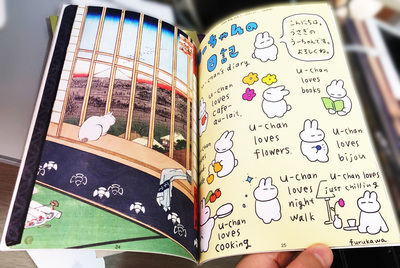 ちゃんの
日記
u-chan's diary.
こんにちは。
うさぎの
うーちゃんです。
よろしくね。
u-chan
loves
cafe-
au-lait.
u-chan
loves
books
u-chan
loves
flowers.
u-chan
loves
bijou
u-chan
loves
cooking
u-chan
loves
night
walk
u-chan loves
just chilling
24
25
furukawa